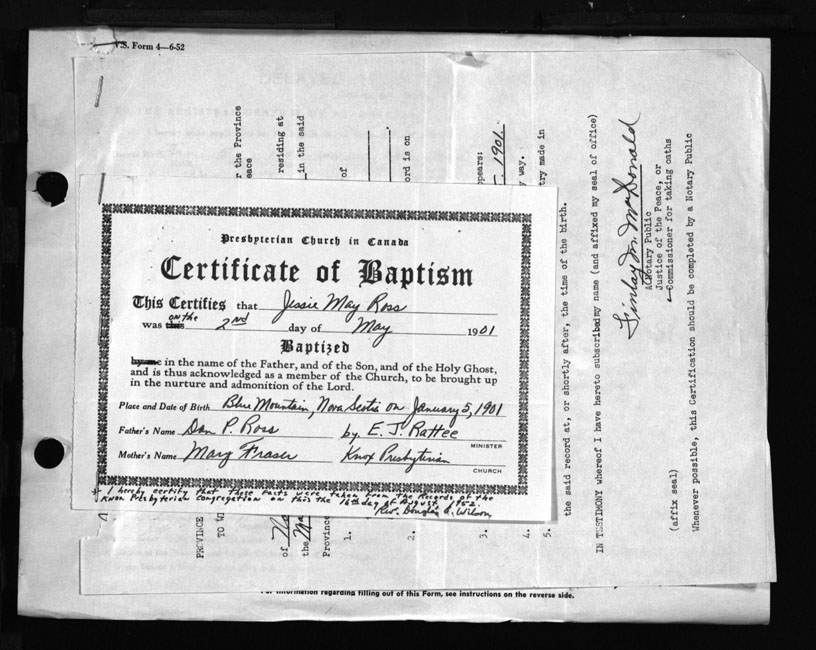 V.S. Form 4—6-52
Presbyterian Church in Canada
Certificate of Baptism
This Certifies that Jessie May Ross
was this on the 2nd day of May 1901
Baptized
by me in the name of the Father, and of the Son, and of the Holy Ghost,
and is thus acknowledged as a member of the Church, to be brought up
in the nurture and admonition of the Lord.
Place and Date of Birth Blue Mountain, Nova Scotia on January 5, 1901
Father's Name Dan P. Ross by E. J. Rattee
MINISTER
Mother's Name Mary Fraser Knox Presbyterian
CHURCH
* I hereby certify that these facts were taken from the Records of the
Knox Presbyterian Congregation on this the 16th day of August '52.
Rev. Douglas A. Wilson
r the Province
eace
residing at
in the said
of
ord is on
ppears:
1901.
y way.
try made in
PROVINCE
TO WI
of
the Ma
Province
1.
2.
3.
4.
5.
the said record at, or shortly after, the time of the birth.
IN TESTIMONY whereof I have hereto subscribed my name (and affixed my seal of office)
Finlay M. McDonald
A Notary Public
Justice of the Peace, or
Commissioner for taking oaths
(affix seal)
Whenever possible, this Certification should be completed by a Notary Public
For information regarding filling out of this Form, see instructions on the reverse side.